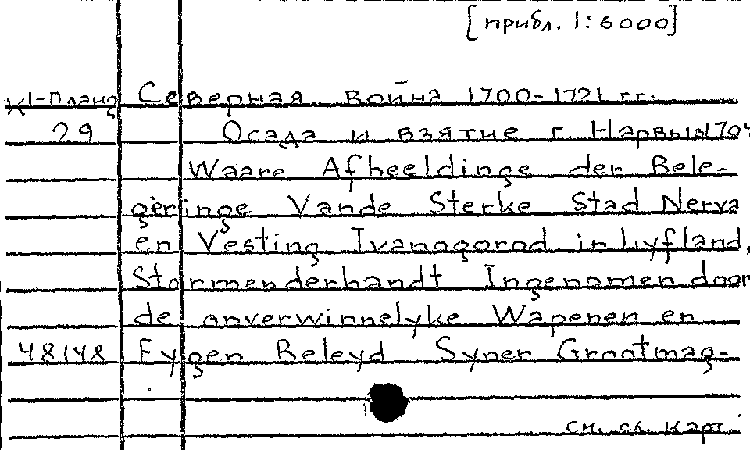 [прибл. 1:6000]
К1-Планц Северная война 1700-1721 гг.
29 Осада и взятие г. Нарвы 1704
Waare Afbeeldinge der Bele-
geringe Vande Sterke Stad Nerva
en Vesting Ivanogorod in Lyfland,
Stormenderhandt Ingenomen door
de onverwinnelyke Wapenen en
48148 Eygen Beleyd Syner Grootmag-
см. об. карт.